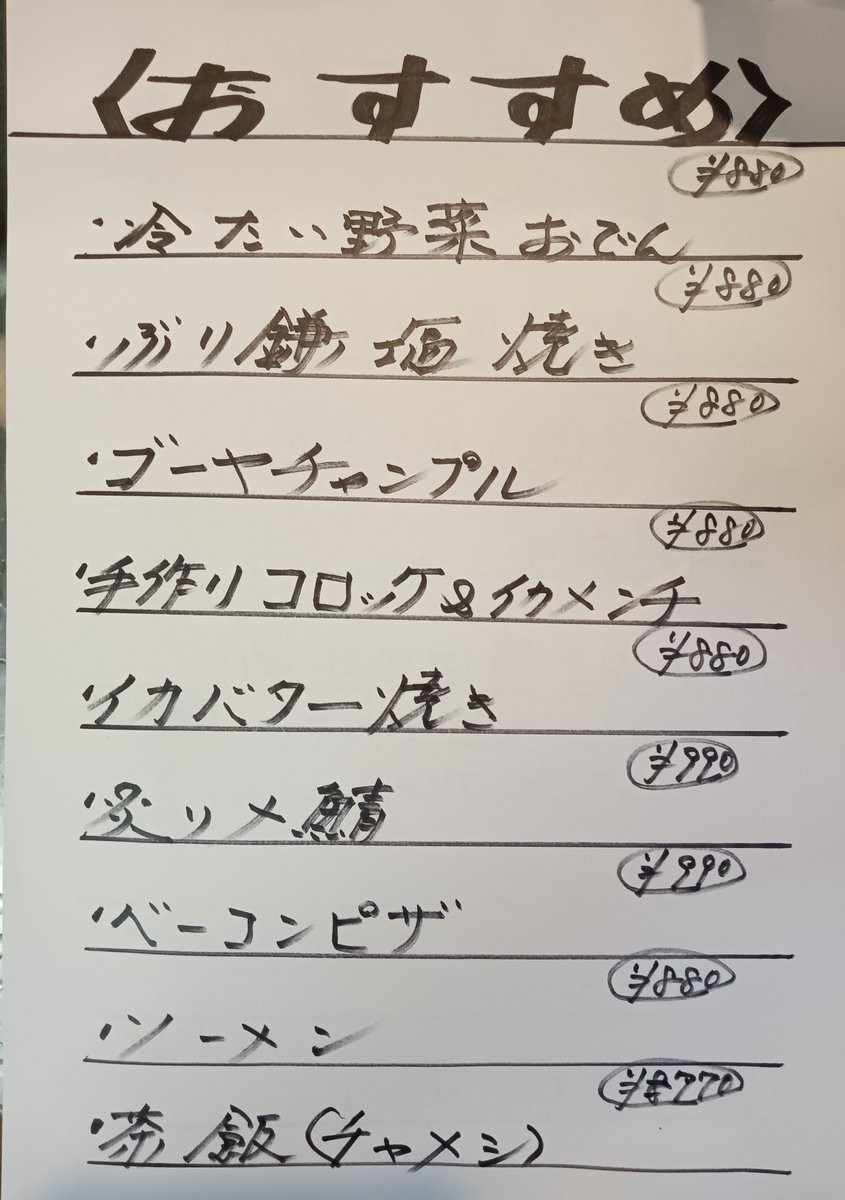 〈おすすめ〉
¥880
・冷たい野菜おでん
¥880
・ぶり鎌塩焼き
¥880
・ゴーヤチャンプル
¥880
・手作りコロッケ&イカメンチ
¥880
・イカバター焼き
¥990
・炙リメ鯖
¥990
・ベーコンピザ
¥880
・ソーメン
¥770
・茶飯(チャメシ)